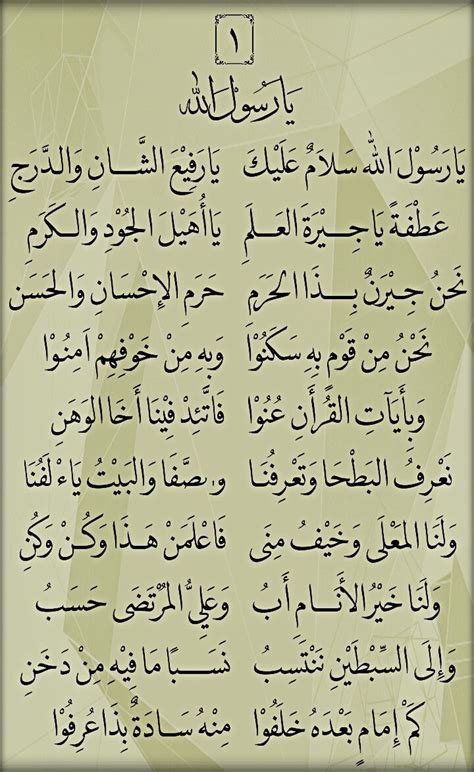 ١
يَا رَسُوْلَ الله
يَا رَسُوْلَ الله سَلاَمٌ عَلَيْكَ يَا رَفِيْعَ الشَّانِ وَالدَّرَجِ
عَطْفَةً يَا جِيْرَةَ العَلَمِ يَا أُهَيْلَ الجُوْدِ وَالكَرَمِ
نَحْنُ جِيْرَنٌ بِذَا الحَرَمِ حَرَمِ الإِحْسَانِ وَالحَسَنِ
نَحْنُ مِنْ قَوْمٍ بِهِ سَكَنُوْا وَبِهِ مِنْ خَوْفِهِمْ اَمِنُوْا
وَبِأَيَآتِ القُرْأَنِ عُنُوْا فَاتَّئِدْ فِيْنَا أَخَا الوَهَنِ
نَعْرِفُ البَطْحَا وَتَعْرِفُنَا وَالصَّفَا وَالبَيْتُ يَاءْلَفُنَا
وَلَنَا المَعْلَى وَخَيْفُ مِنَى فَاعْلَمَنْ هَذَا وَكُنْ وَكُنِ
وَلَنَا خَيْرُ الأَنَامِ أَبُ وَعَلِيُّ المُرْتَضَى حَسَبُ
وَإِلَى السِّبْطَيْنِ نَنْتَسِبُ نَسَبًا مَا فِيْهِ مِنْ دَخَنِ
كَمْ إِمَامٍ بَعْدَهُ خَلَفُوْا مِنْهُ سَادَةٌ بِذَا عُرِفُوْا